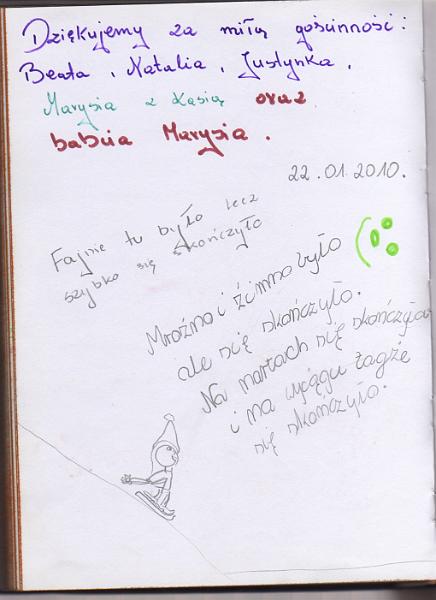 Dziękujemy za miłą gościnność:
Beata, Natalia, Justynka,
Marysia z Kasią oraz
babcia Marysia.
22.01.2010.
Fajnie tu było lecz
szybko się skończyło
Mroźno i źimno było
ale się skończyło.
Na nartach się skończyło
i na wyciągu tagże
się skończyło.